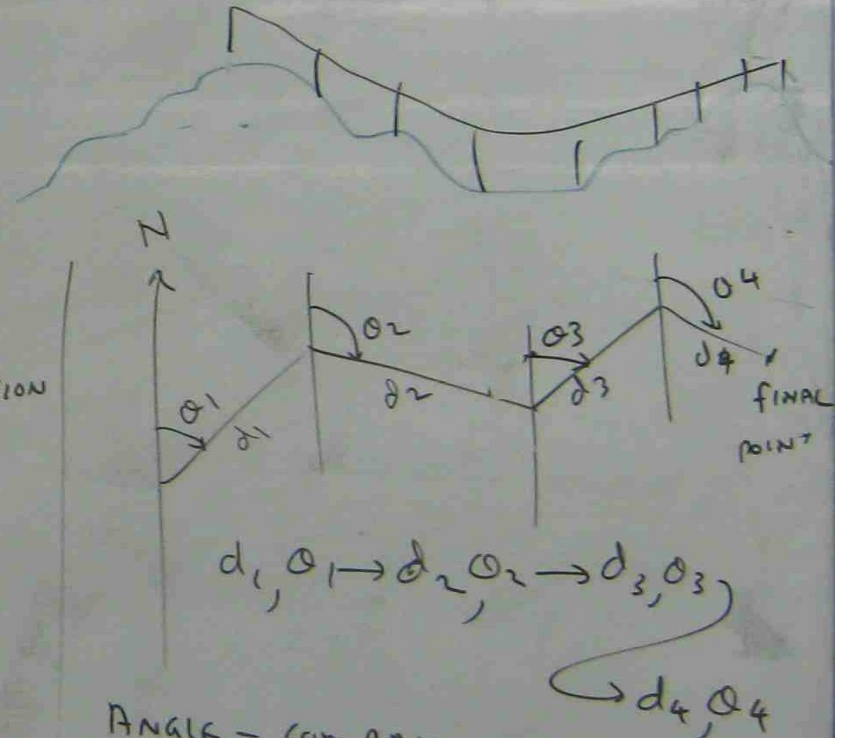 N
θ1
d1
θ2
d2
θ3
d3
θ4
d4
FINAL
POINT
d1, θ1 → d2, θ2 → d3, θ3
d4, θ4
ANGLE -